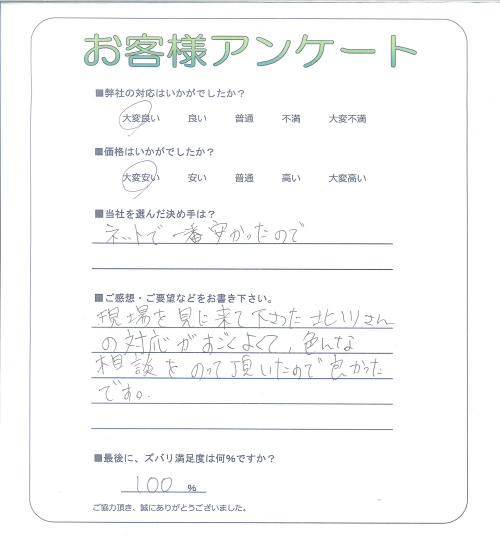 お客様アンケート
■弊社の対応はいかがでしたか？
大変良い 良い 普通 不満 大変不満
■価格はいかがでしたか？
大変安い 安い 普通 高い 大変高い
■当社を選んだ決め手は？
ネットで一番安かったので
■ご感想・ご要望などをお書き下さい。
現場を見に来て下さった北川さん
の対応がすごくよくて、色んな
相談をのって頂いたので良かった
です。
■最後に、ズバリ満足度は何％ですか？
100 ％
ご協力頂き、誠にありがとうございました。